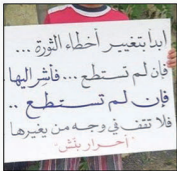 ابدأ بتغيير أخطاء الثورة ...
فإن لم تستطع ... فأشر إليها
فإن لم تستطع ..
فلا تقف في وجه من يغيرها
"أحرار بنش"